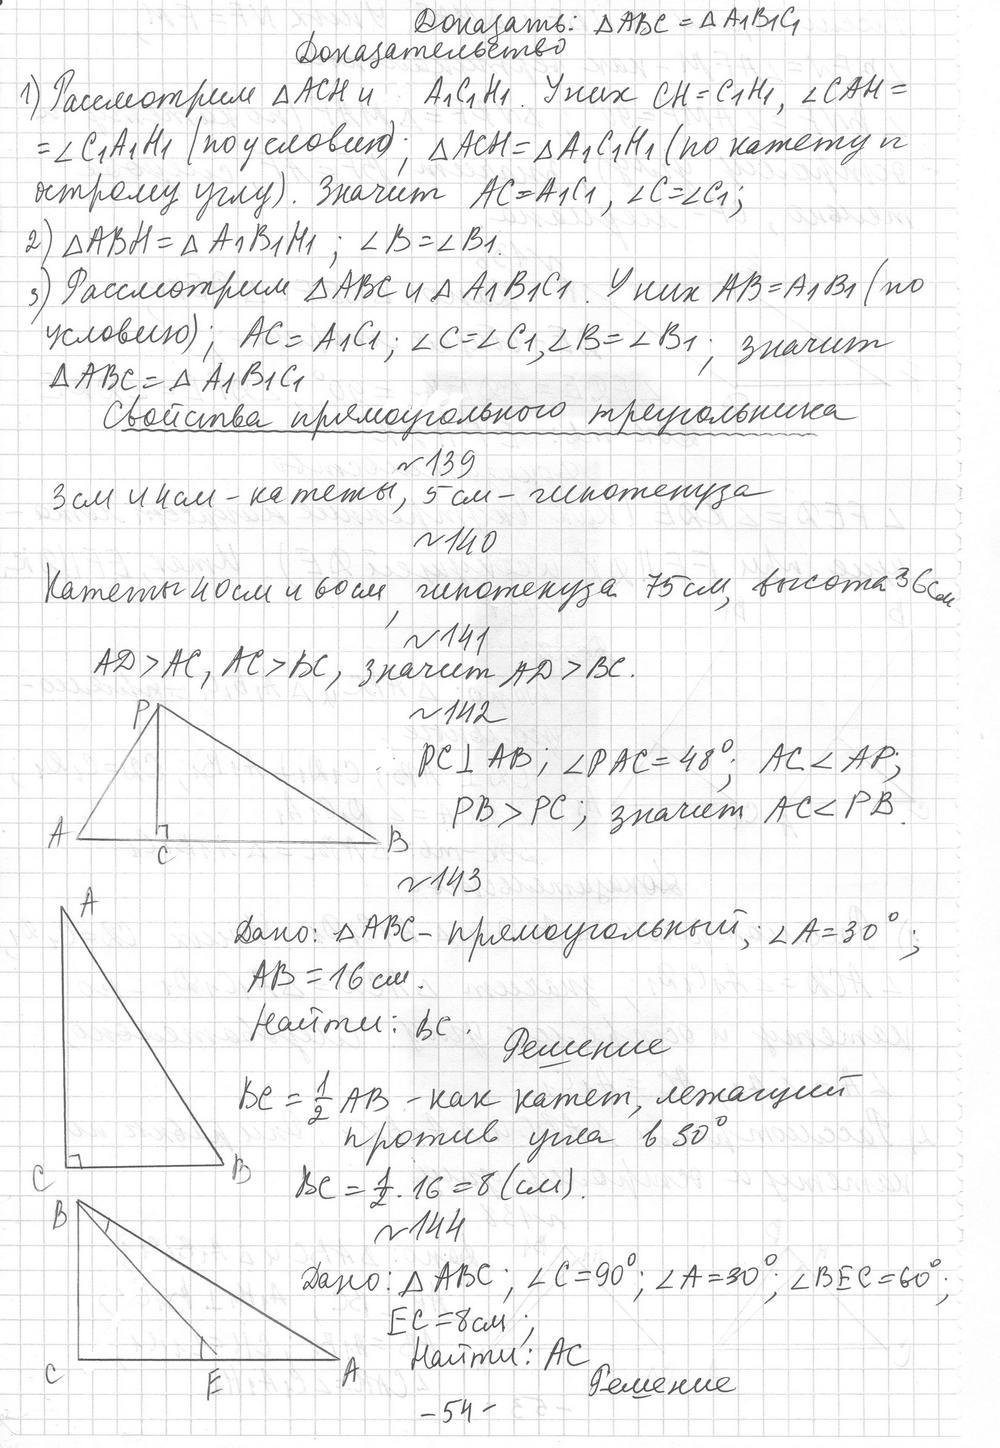 Доказать: △ABC = △A₁B₁C₁
Доказательство
1) Рассмотрим △ACH и A₁C₁H₁. У них CH = C₁H₁, ∠CAH =
= ∠C₁A₁H₁ (по условию); △ACH = △A₁C₁H₁ (по катету и
острому углу). Значит AC = A₁C₁, ∠C = ∠C₁;
2) △ABH = △A₁B₁H₁; ∠B = ∠B₁.
3) Рассмотрим △ABC и △A₁B₁C₁. У них AB = A₁B₁ (по
условию); AC = A₁C₁; ∠C = ∠C₁, ∠B = ∠B₁; значит
△ABC = △A₁B₁C₁
Свойства прямоугольного треугольника
~139
3см и 4см - катеты, 5 см - гипотенуза
~140
Катеты 40см и 60см, гипотенуза 75 см, высота 36см
~141
AD > AC, AC > BC, значит AD > BC.
~142
P
A
C
B
PC ⊥ AB; ∠PAC = 48°; AC < AP;
PB > PC; значит AC < PB.
~143
A
C
B
Дано: △ABC - прямоугольный; ∠A = 30°;
AB = 16 см.
Найти: BC.
Решение
BC = 1/2 AB - как катет, лежащий
против угла в 30°
BC = 1/2 · 16 = 8 (см).
~144
B
C
E
A
Дано: △ABC; ∠C = 90°; ∠A = 30°; ∠BEC = 60°;
EC = 8см;
Найти: AC
Решение
-54-